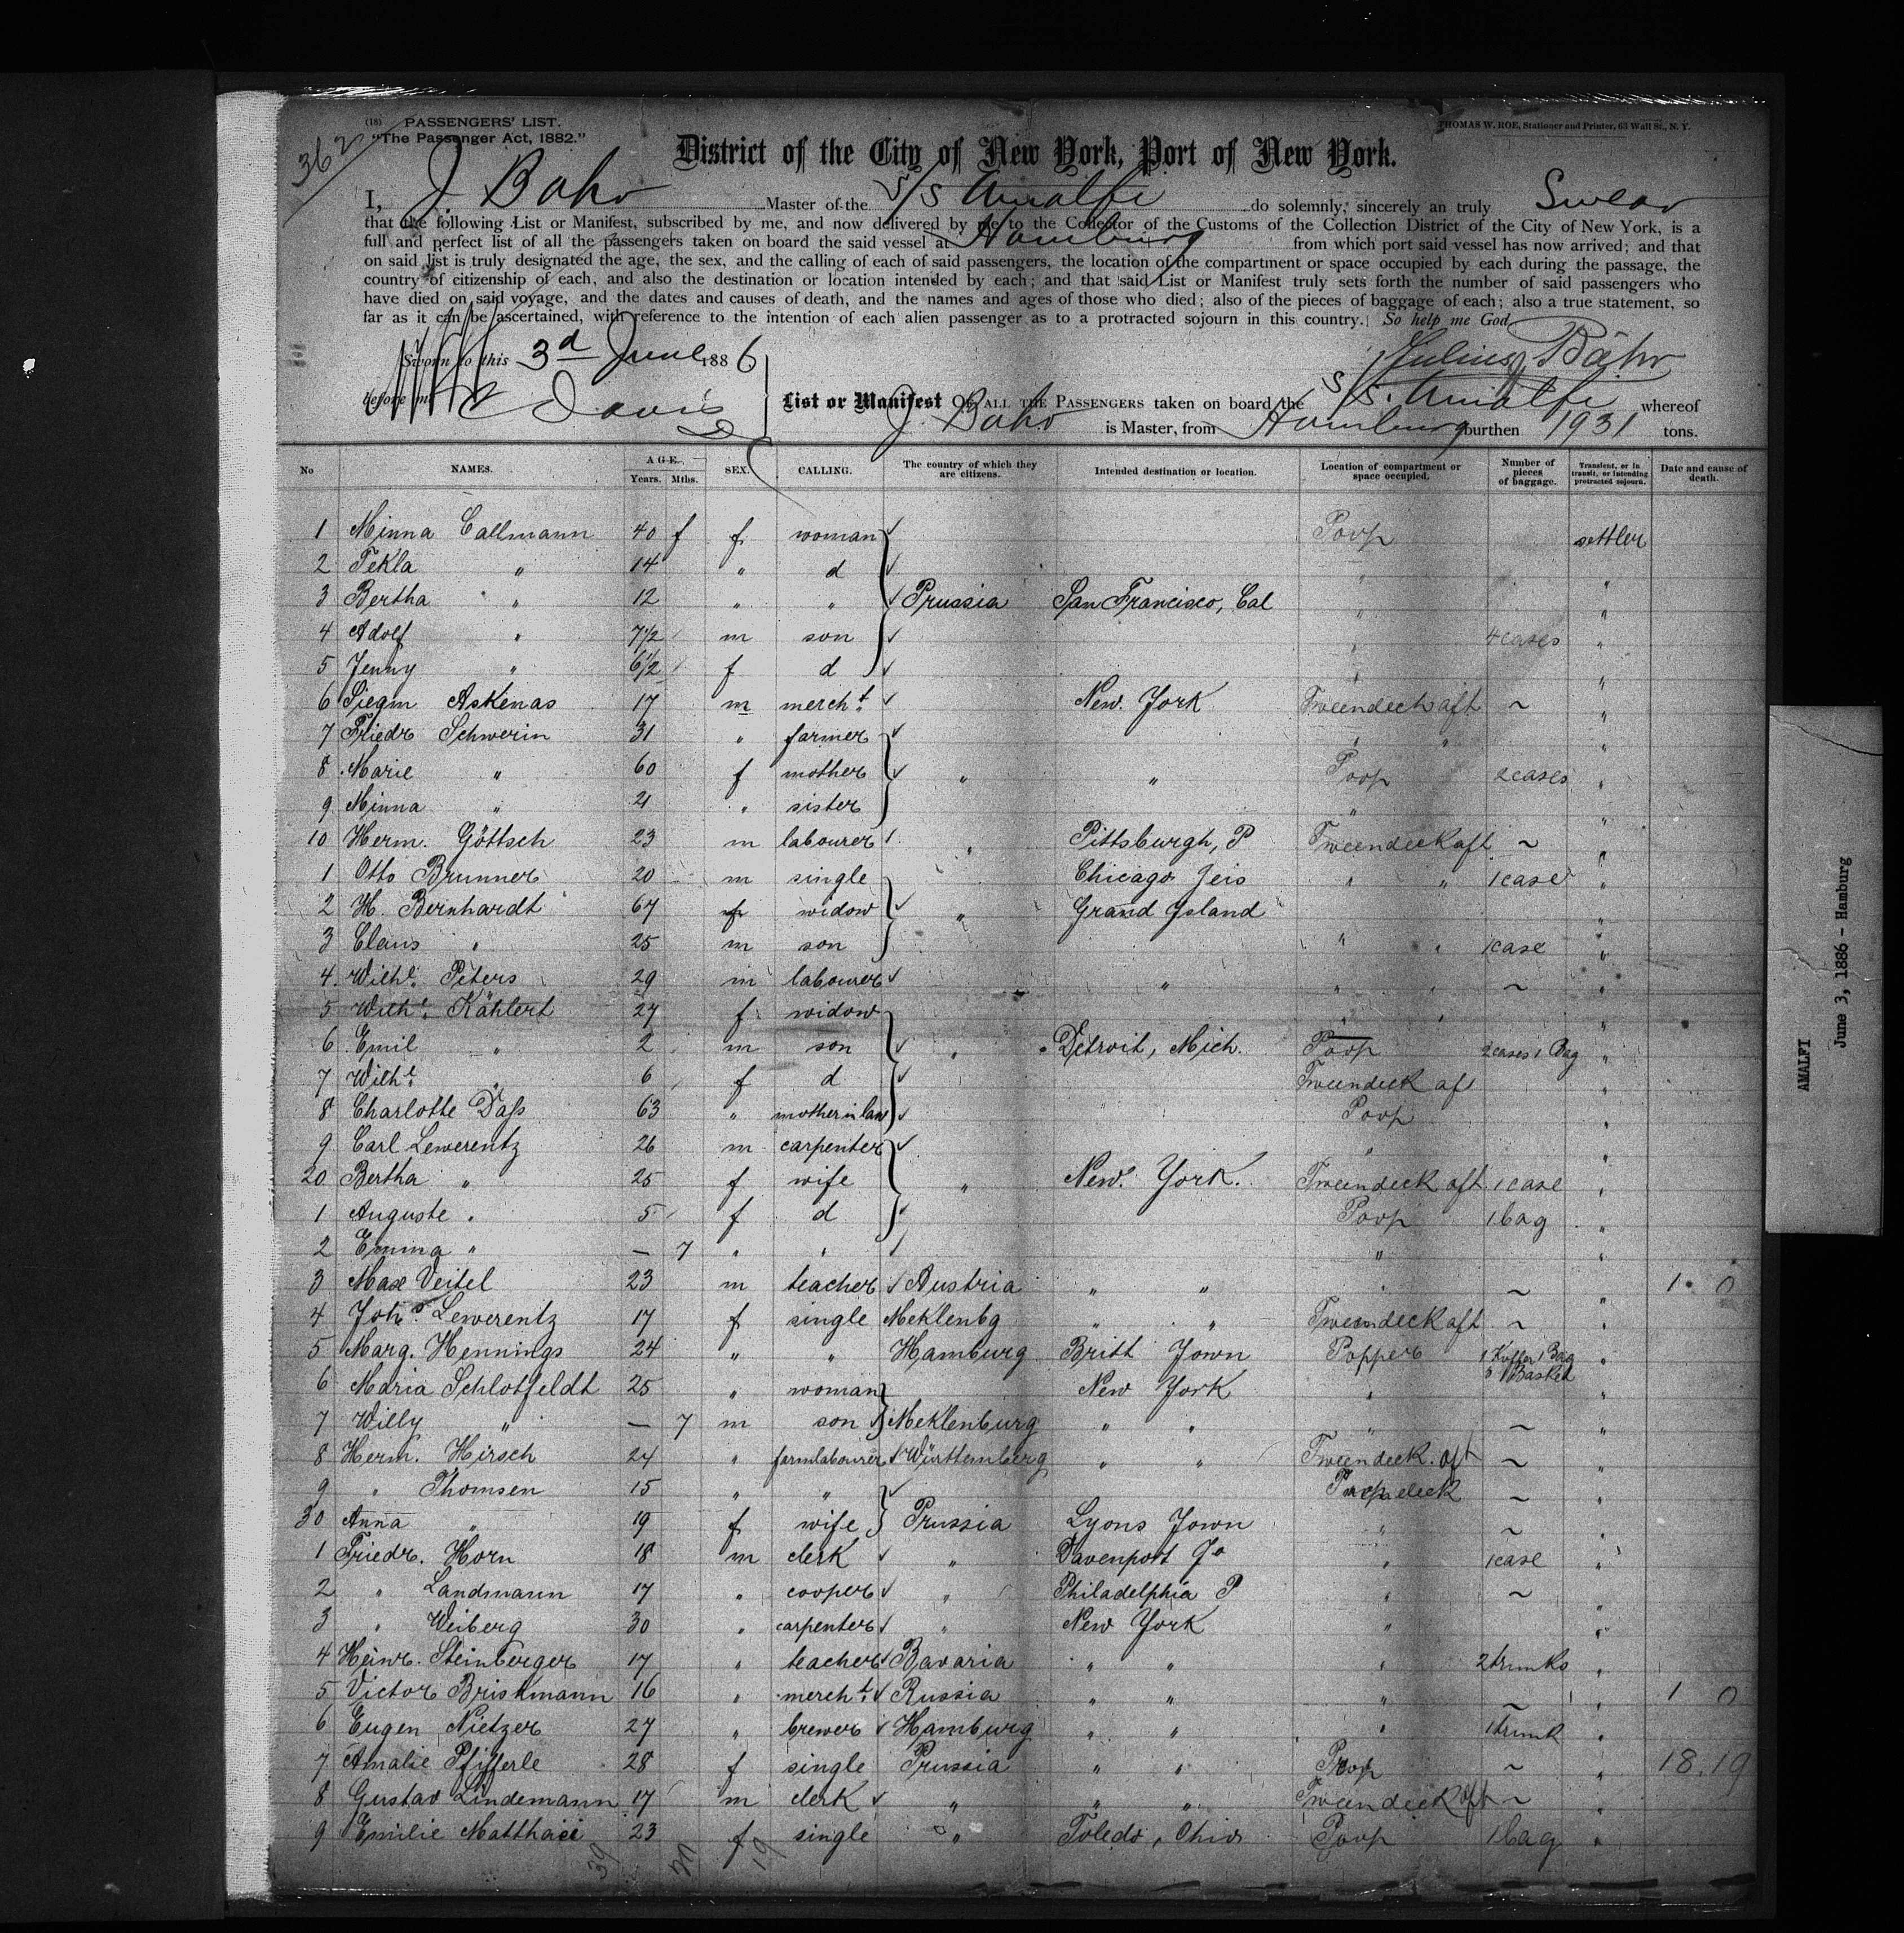 (18) PASSENGERS' LIST.
"The Passenger Act, 1882."
362
THOMAS W. ROE, Stationer and Printer, 65 Wall St., N. Y.
District of the City of New York, Port of New York.
I, J. Bahr Master of the S/S Amalfi do solemnly, sincerely an truly Swear
that the following List or Manifest, subscribed by me, and now delivered by me to the Collector of the Customs of the Collection District of the City of New York, is a
full and perfect list of all the passengers taken on board the said vessel at Hamburg from which port said vessel has now arrived; and that
on said list is truly designated the age, the sex, and the calling of each of said passengers, the location of the compartment or space occupied by each during the passage, the
country of citizenship of each, and also the destination or location intended by each; and that said List or Manifest truly sets forth the number of said passengers who
have died on said voyage, and the dates and causes of death, and the names and ages of those who died; also of the pieces of baggage of each; also a true statement, so
far as it can be ascertained, with reference to the intention of each alien passenger as to a protracted sojourn in this country. So help me God.
Sworn to this 3d June 1886 Julius Bähr
before me Davis
List or Manifest OF ALL THE PASSENGERS taken on board the S/S. Amalfi whereof
J. Bahr is Master, from Hamburg burthen 1931 tons.
No NAMES. AGE. Years. Mths. SEX. CALLING. The country of which they are citizens. Intended destination or location. Location of compartment or space occupied. Number of pieces of baggage. Transient, or in transit, or intending protracted sojourn. Date and cause of death.
1 Minna Callmann 40 f f woman Poop settler
2 Tekla " 14 " d " "
3 Bertha " 12 " " Prussia San Francisco, Cal " "
4 Adolf " 7½ m son " 4 cases "
5 Jenny " 6½ f d " "
6 Siegm Askenas 17 m mercht. New York Tweendeck aft ~ "
7 Friedr Schwerin 31 " farmer " " "
8 Marie " 60 f mother " " Poop 2 cases "
9 Minna " 21 " sister " "
10 Herm. Göttsch 23 m labourer " Pittsburgh, P Tweendeck aft ~ "
1 Otto Brunner 20 m single Chicago Jeis " " 1 case "
2 H. Bernhardt 67 f widow " Grand Island "
3 Claus " 25 m son " " 1 case "
4 Wilhe. Peters 29 m labourer " " " ~ "
5 Wilhe. Kählert 27 f widow " " "
6 Emil " 2 m son " Detroit, Mich. Poop 2 cases 1 Bag "
7 Wilhe. " 6 f d Tweendeck af "
8 Charlotte Daß 63 " mother in law Poop "
9 Carl Lewerentz 26 m carpenter " "
20 Bertha " 25 f wife " New York. Tweendeck aft 1 case "
1 Auguste " 5 f d Poop 1 bag "
2 Emma " — 7 " " " "
3 Max Veitel 23 m teacher Austria " " " ~ " 1. 0
4 Johs. Lewerentz 17 f single Meklenbg " " Tweendeck aft ~ "
5 Marg. Hennings 24 " " Hamburg Britt Jown Popper 1 Koffer 1 Bag 1 Basket "
6 Maria Schlotfeldt 25 " woman New York " "
7 Willy " — 7 m son Meklenburg " " " ~ "
8 Herm. Hirsch 24 " farmlabourer Württemberg " " Tweendeck. aft ~ "
9 " Thomsen 15 " " deck ~ "
30 Anna " 19 f wife Prussia Lyons Jown " ~ "
1 Friedr. Horn 18 m clerk " Davenport Jo " 1 case "
2 " Landmann 17 " cooper " Philadelphia P " ~ "
3 " Weiberg 30 " carpenter " New York " "
4 Heinr. Steinberger 17 " teacher Bavaria " " " 2 trunks "
5 Victor Briskmann 16 " mercht. Russia " " " ~ " 1 0
6 Eugen Nietzer 27 " brewer Hamburg " " " 1 trunk "
7 Amalie Pfifferle 28 f single Prussia " " Poop ~ " 18.19
8 Gustav Lindemann 17 m clerk " " " Tweendeck aft ~ "
9 Emilie Matthaei 23 f single " Toledo, Ohio Poop 1 bag "
39 20 19
AMALFI
June 3, 1886 - Hamburg